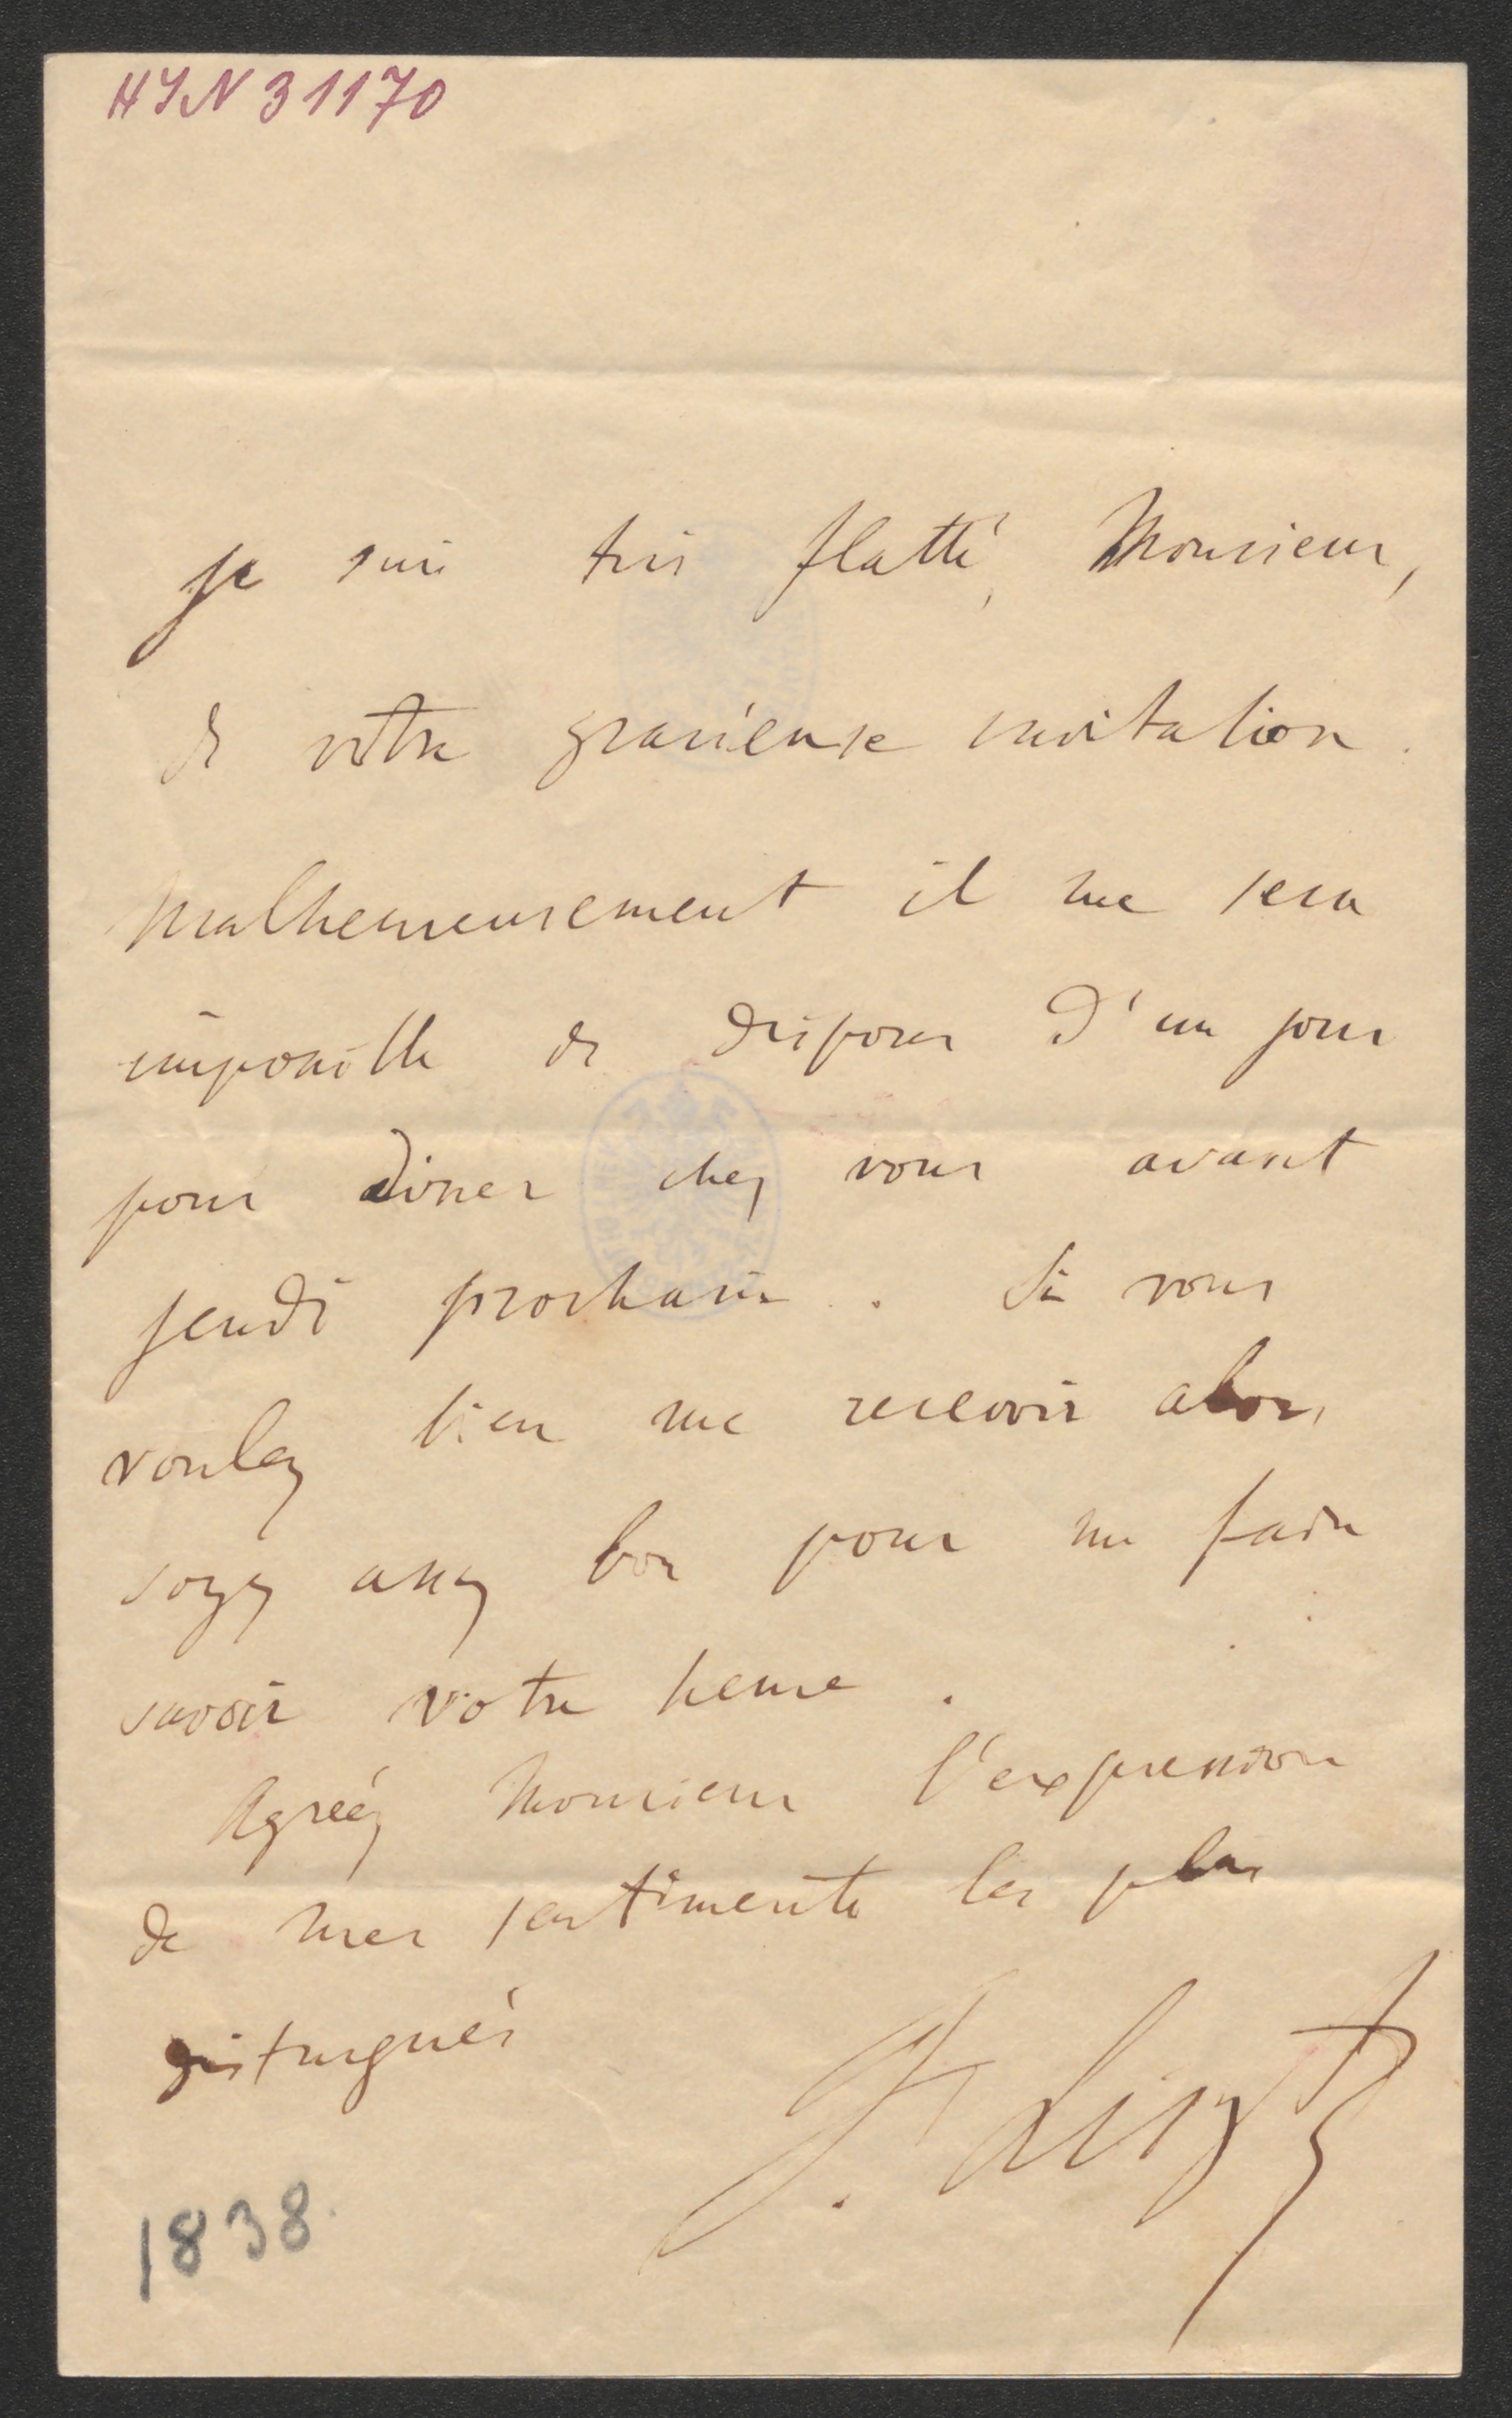 HIN 31170
je suis très flatté, Monsieur,
de votre gracieuse invitation.
Malheureusement il me sera
impossible de disposer d'un jour
pour diner chez vous avant
jeudi prochain. Si vous
voulez bien me recevoir alors,
soyez assez bon pour me faire
savoir votre heure.
Agréez Monsieur l'expression
de mes sentiments les plus
distingués
F. Liszt
1838.